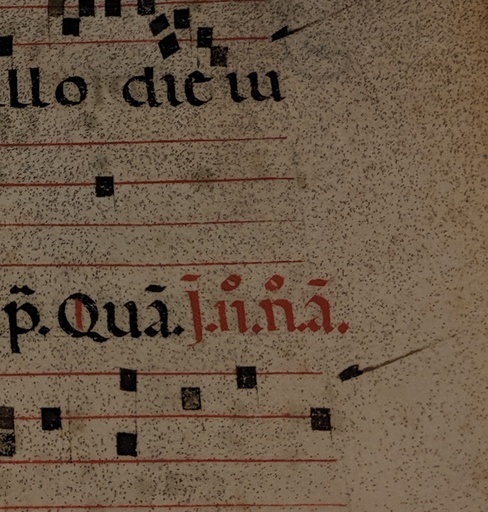 llo dic iu
p̃. Quā. J.ii̊.n̊.ā.